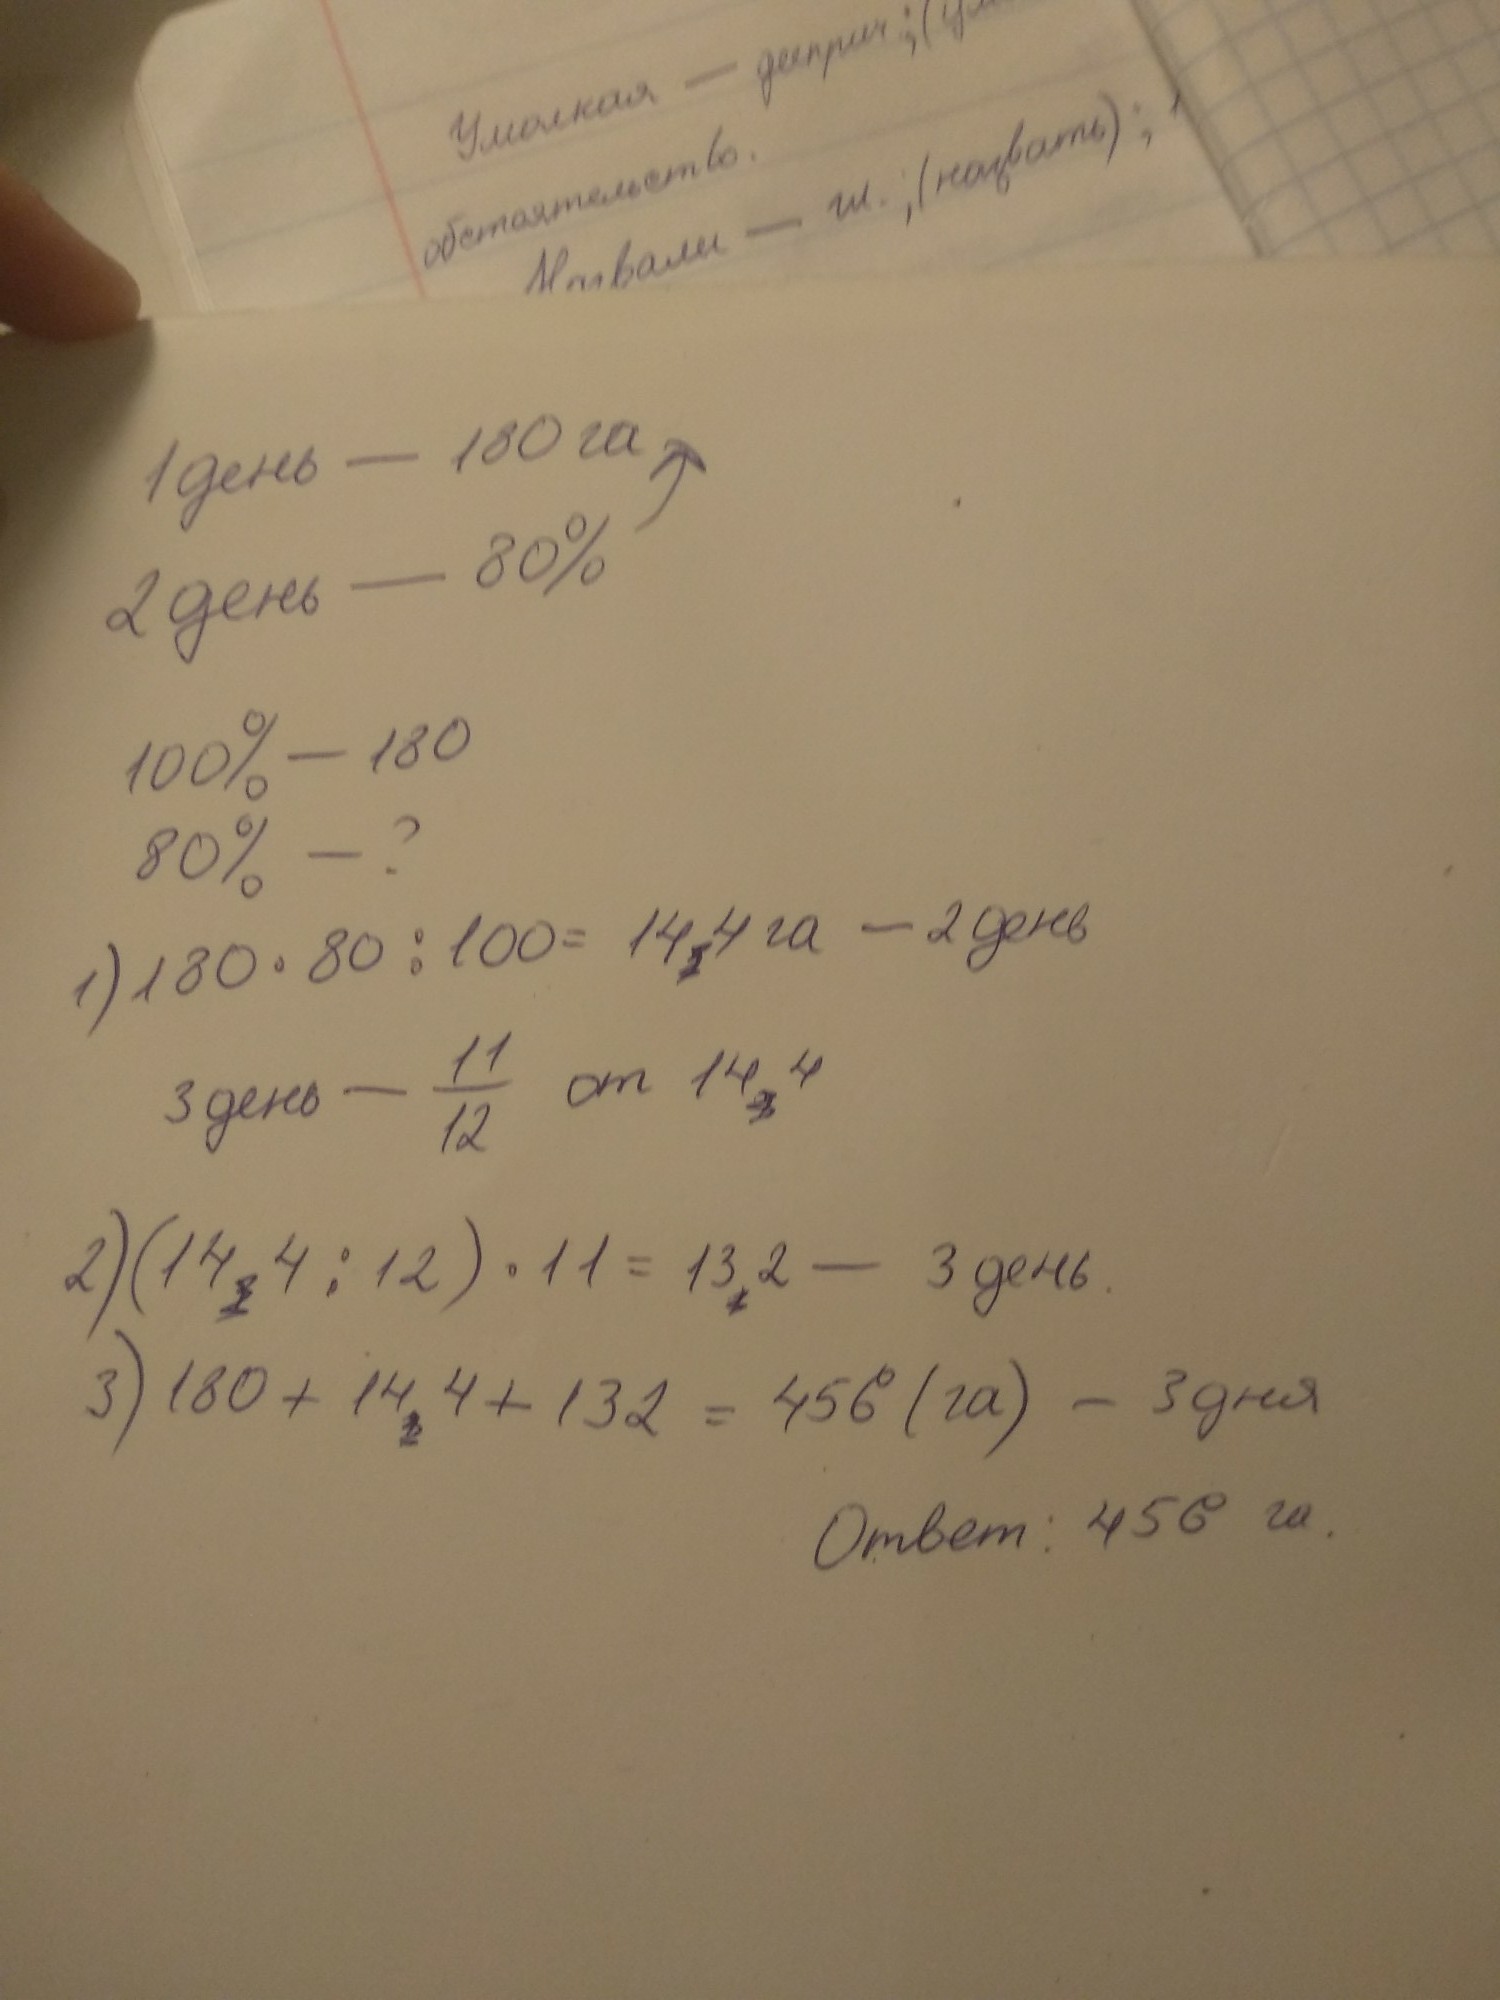 Умолкая — дееприч.;
обстоятельство.
Назвали — гл.; (назвать);
1 день — 180 га
2 день — 80%
100% — 180
80% — ?
1) 180 · 80 : 100 = 144 га — 2 день
3 день — 11/12 от 144
2) (144 : 12) · 11 = 132 — 3 день.
3) 180 + 144 + 132 = 456 (га) — 3 дня
Ответ: 456 га.